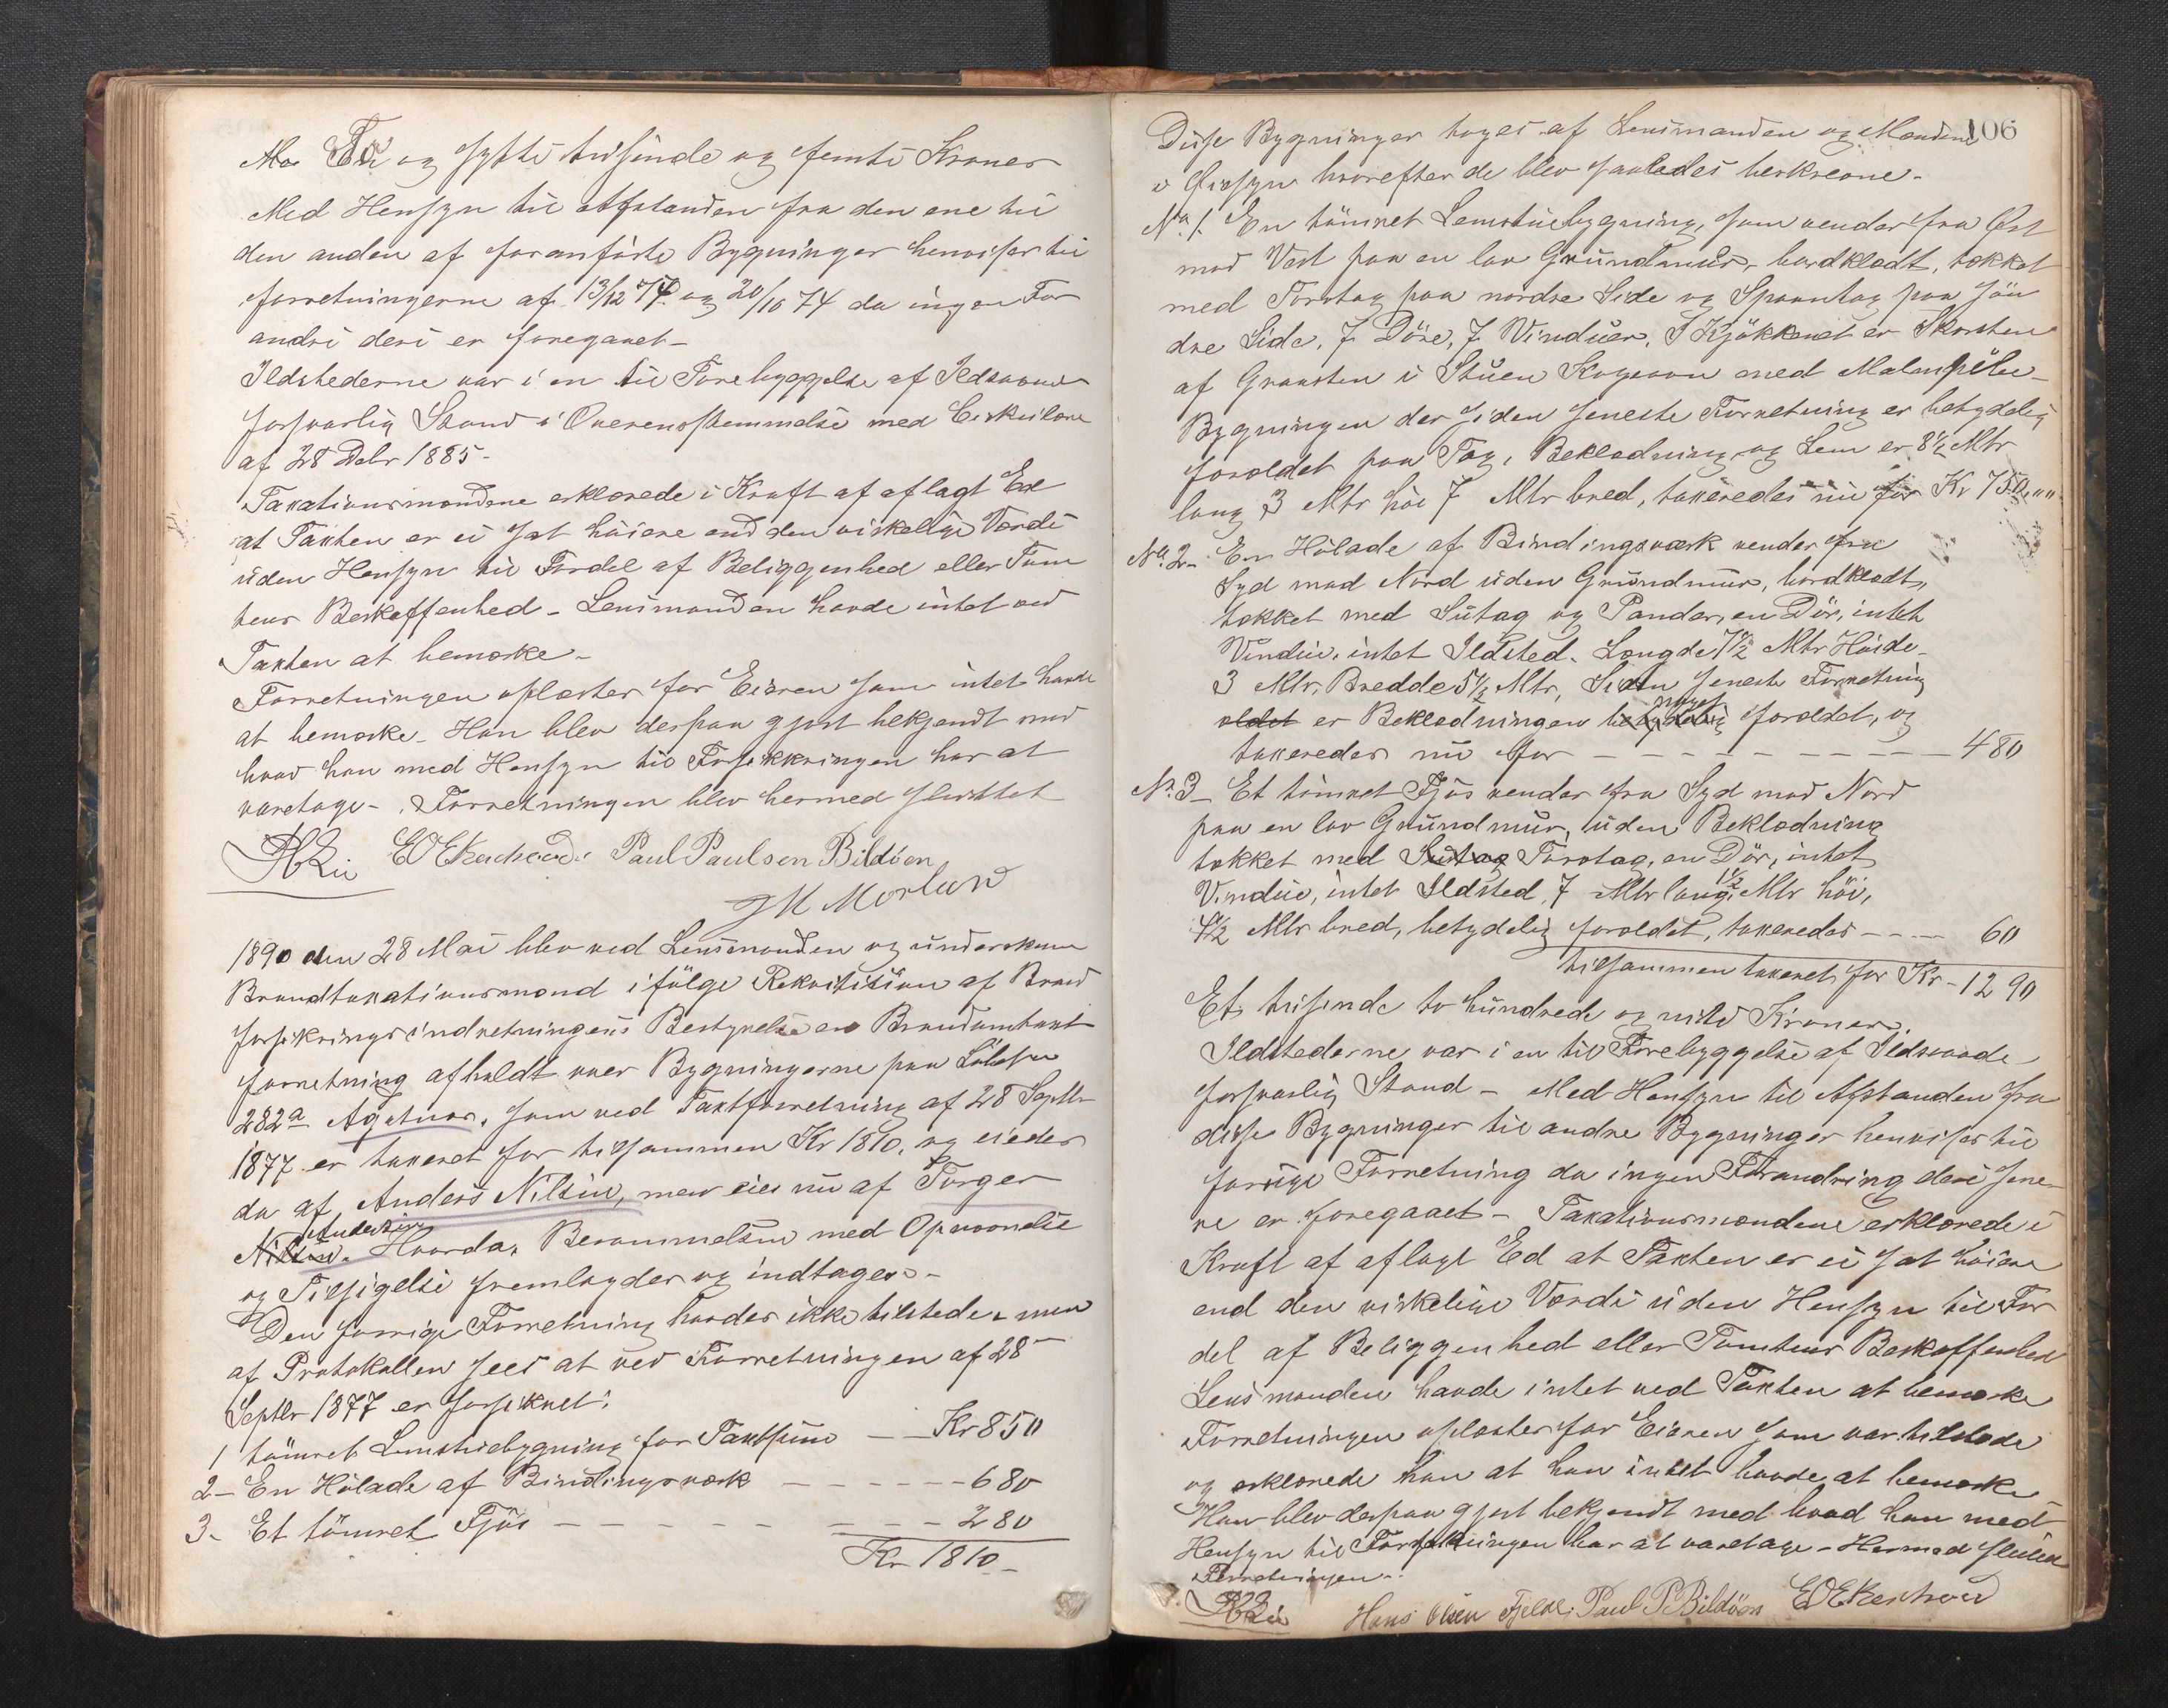 En og sytti tusinde og femti Kroner
Med Hensyn til Afstanden fra den ene til
den anden af foranførte Bygninger henvises til
forretningerne af 13/12 74 og 20/10 74 da ingen For
andri deri er foregaaet -
Ildstederne var i en til Forebyggelse af Ildsvaade
forsvarlig Stand i Overensstemmelse med Cirkulære
af 28 Debr 1885 -
Taxationsmændene erklærede i Kraft af aflagt Ed
at Taxten er ei sat høiere end den virkelige Værdi
uden Hensyn til Fordel af Beliggenhed eller Tom
tens Beskaffenhed - Lensmanden havde intet ved
Taxten at bemærke -
Forretningen oplæstes for Eieren som intet havde
at bemærke - Han blev derpaa gjort bekjendt med
hvad han med Hensyn til Forsikkringen har at
varetage - Forretningen blev hermed sluttet
Paul Paulsen Bildöen
1890 den 28 Mai blev ved Lensmanden og underskrevne
Brandtaxationsmænd ifølge Rekvisition af Brand
forsikringsindretningens Bestyrelse en Brandomtaxt
forretning afholdt over Bygningerne paa Løbe No
282a Agotnes, som ved Taxtforretning af 28 Septbr
1877 er taxeret for tilsammen Kr 1810, og eiedes
da af Anders Nilsen, men eies nu af Torger
Nilsen Andersen Haarda, Berammelsen med Opnævnelse
og Tilsigelse fremlagdes og indtages -
Den forrige Forretning havdes ikke tilstede, men
af Protokollen sees at ved Forretningen af 28
Septbr 1877 er forsikret:
1 tömret Lemstuebygning for Taxtsum - - Kr 850
2 - En Hölade af Bindingsværk - - - - - 680
3 - Et tömret Fjös - - - - - - - - - 280
Kr 1810 -
106
Disse Bygninger toges af Lensmanden og Mændene
i Øiesyn hvorefter de blev saaledes beskrevne -
No. 1. En tömret Lemstuebygning, som vender fra Øst
mod Vest paa en lav Grundmur, bordklædt, tækket
med Torvtag paa nordre Side og Spaantag paa søn
dre Side, 7 Döre, 7 Vinduer, I Kjökkenet er Skorsten
af Graasten i Stuen Kogeovn med Malmpibe -
Bygningen der siden seneste Forretning er betydelig
foroldet paa Tag, Beklædning og Lem er 8½ Mtr
lang 3 Mtr höi 7 Mtr bred, taxeredes nu for Kr 750,""
No. 2 - En Hölade af Bindingsværk vender fra
Syd mod Nord uden Grundmur, bordklædt,
tækket med Sutag og Pander, en Dör, intet
Vindue, intet Ildsted. Længde 7½ Mtr Høide
3 Mtr, Bredde 5½ Mtr, Siden seneste Forretning
oldet er Beklædningen betydelig noget foroldet, og
taxeredes nu for - - - - - - - - 480
No. 3 - Et tömret Fjös vender fra Syd mod Nord
paa en lav Grundmur, uden Beklædning
tækket med Sutag Torvtag, en Dör, intet
Vindue, intet Ildsted, 7 Mtr lang, 1½ Mtr höi,
4½ Mtr bred, betydelig foroldet, taxeredes - - - 60
tilsammen taxeret for Kr - 1290
Et tusinde to hundrede og nitti Kroner.
Ildstederne var i en til Forebyggelse af Ildsvaade
forsvarlig Stand - Med Hensyn til Afstanden fra
disse Bygninger til andre Bygninger henvises til
forrige Forretning da ingen Forandring deri sene
re er foregaaet - Taxationsmændene erklærede i
Kraft af aflagt Ed at Taxten er ei sat höiere
end den virkelige Værdi uden Hensyn til For
del af Beliggenhed eller Tomtens Beskaffenhed
Lensmanden havde intet ved Taxten at bemærke
Forretningen oplæstes for Eieren som var tilstede
og erklærede han at han intet havde at bemærke
Han blev derpaa gjort bekjendt med hvad han med
Hensyn til Forsikringen har at varetage - Hermed sluttet
Forretningen -
Hans Olsen Fjelde Paul P Bildöen